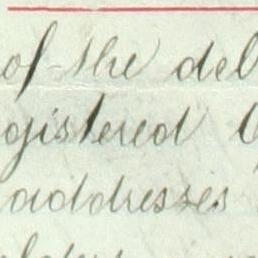 of the del
egistered
addresses